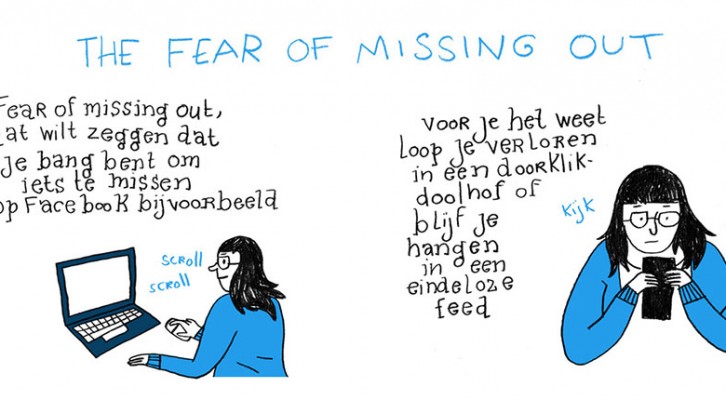 THE FEAR OF MISSING OUT
Fear of missing out,
at wilt zeggen dat
je bang bent om
iets te missen
op Facebook bijvoorbeeld
scroll
scroll
voor je het weet
loop je verloren
in een doorklik-
doolhof of
blijf je
hangen
in een
eindeloze
feed
kijk